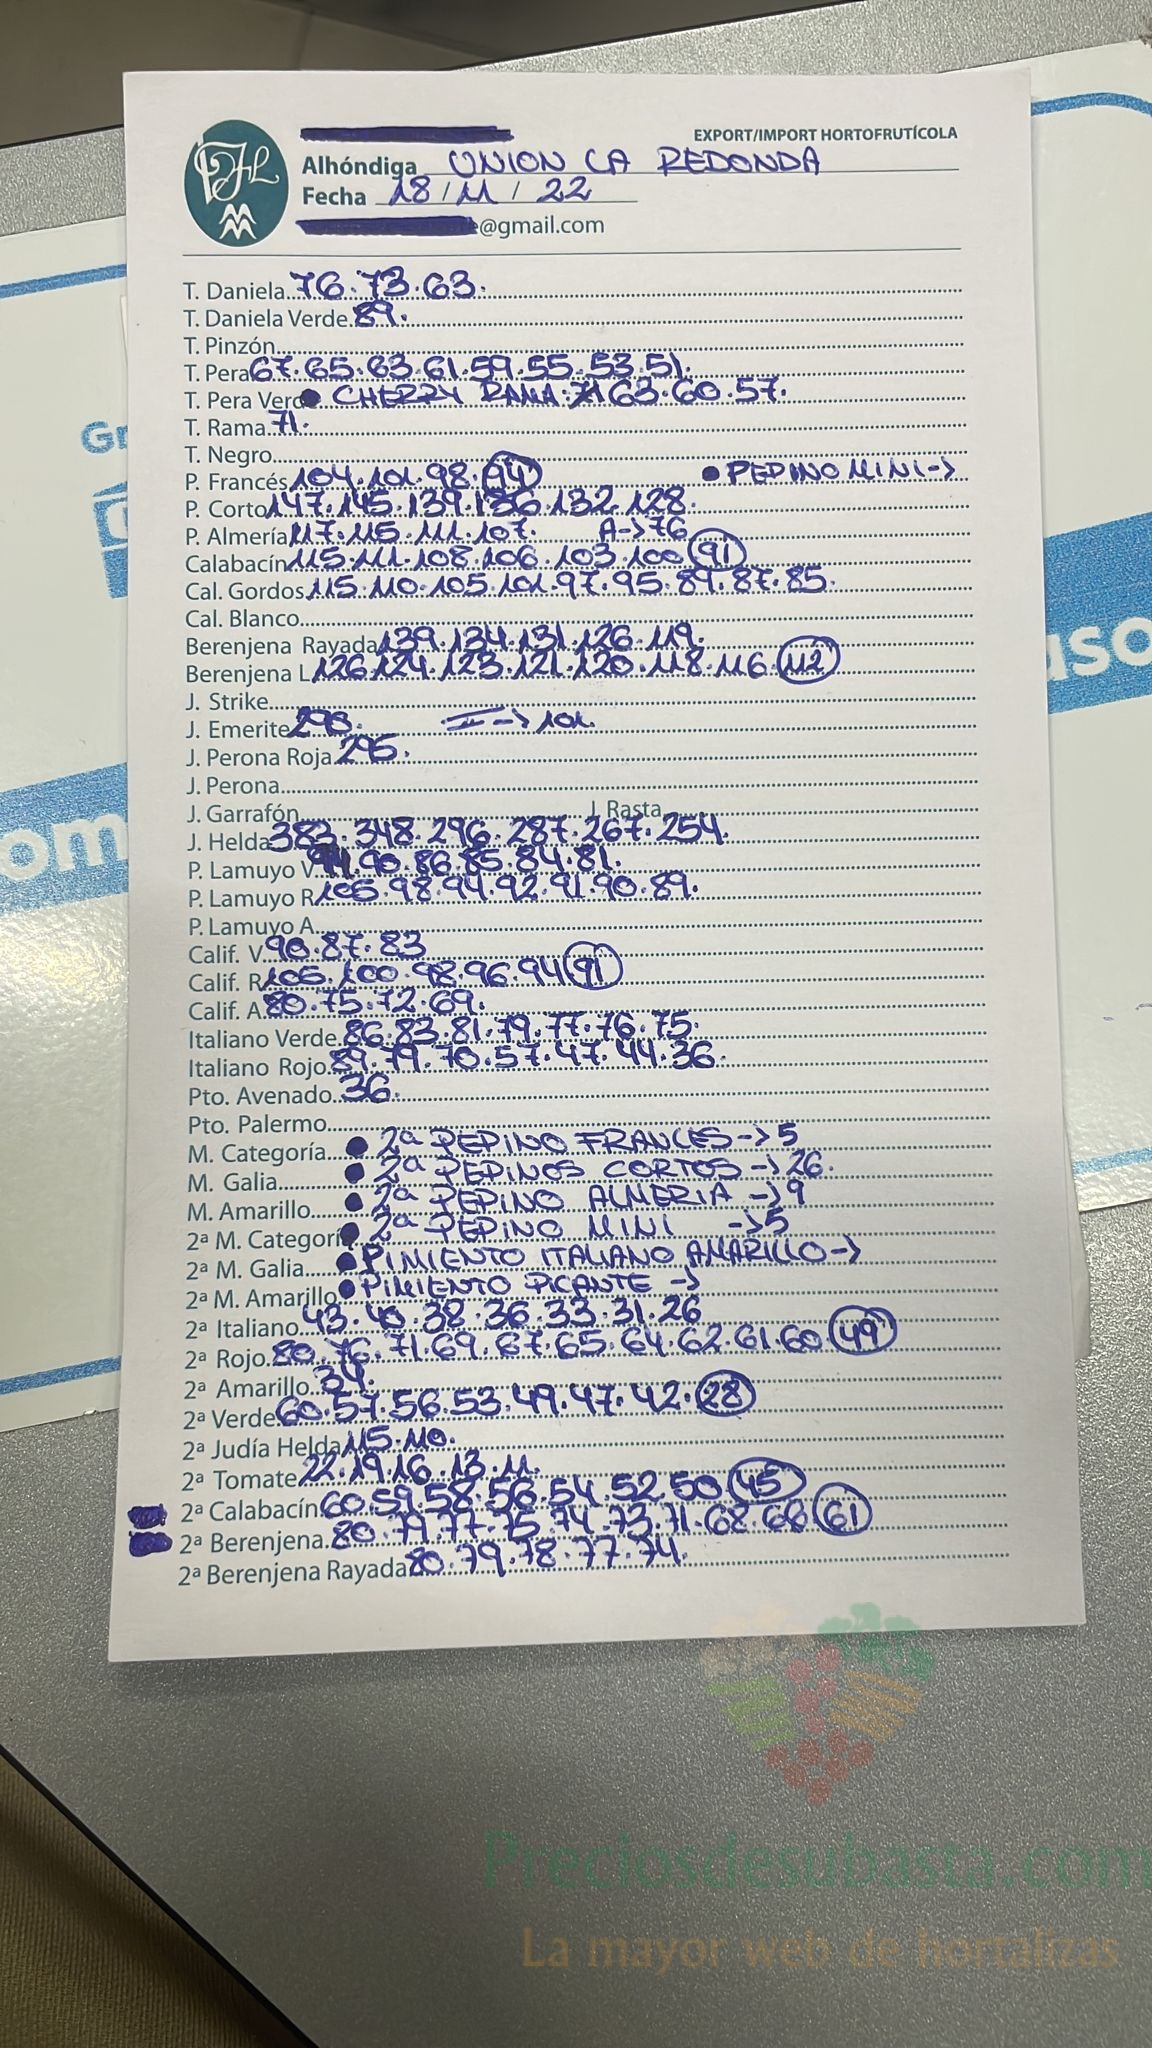 EXPORT/IMPORT HORTOFRUTÍCOLA
Alhóndiga UNION LA REDONDA
Fecha 18/11/22
@gmail.com
T. Daniela 76.73.63.
T. Daniela Verde 89.
T. Pinzón
T. Pera 67.65.63.61.59.55.53.51.
T. Pera Verde • CHERRY RAMA: 71 63.60.57.
T. Rama 71.
T. Negro
P. Francés 104.101.98.94 • PEPINO MINI->
P. Corto 147.145.139.136.132.128.
P. Almería 117.115.111.107. A->76
Calabacín 115.111.108.106.103.100 91
Cal. Gordos 115.110.105.101.97.95.89.87.85.
Cal. Blanco
Berenjena Rayada 139.134.131.126.119.
Berenjena L 126.124.123.121.120.118.116.112
J. Strike
J. Emerite 290. II->101.
J. Perona Roja 295.
J. Perona
J. Garrafón J. Rasta
J. Helda 383.348.296.287.267.254.
P. Lamuyo V. 90.86.85.84.81.
P. Lamuyo R 105.98.94.92.91.90.89.
P. Lamuyo A
Calif. V. 90.87.83
Calif. R 105.100.98.96.94 91
Calif. A. 80.75.72.69.
Italiano Verde 86.83.81.79.77.76.75.
Italiano Rojo 89.79.70.57.47.44.36.
Pto. Avenado 36.
Pto. Palermo
M. Categoría • 2ª PEPINO FRANCES->5
M. Galia • 2ª PEPINOS CORTOS->26.
M. Amarillo • 2ª PEPINO ALMERIA->9
2ª M. Categorí • 2ª PEPINO MINI ->5
2ª M. Galia • PIMIENTO ITALIANO AMARILLO->
2ª M. Amarillo • PIMIENTO PICANTE->
2ª Italiano 43.40.38.36.33.31.26
2ª Rojo 80.76.71.69.67.65.64.62.61.60 49
2ª Amarillo 34.
2ª Verde 60.57.56.53.49.47.42.28
2ª Judía Helda 115.110.
2ª Tomate 22.19.16.13.11.
2ª Calabacín 60.59.58.56.54.52.50 45
2ª Berenjena 80.79.77.75.74.73.71.68.66 61
2ª Berenjena Rayada 80.79.78.77.74.
Preciosdesubasta.com
La mayor web de hortalizas